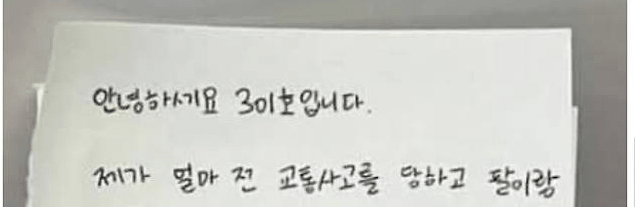 안녕하세요 301호입니다.
제가 얼마 전 교통사고를 당하고 팔이랑